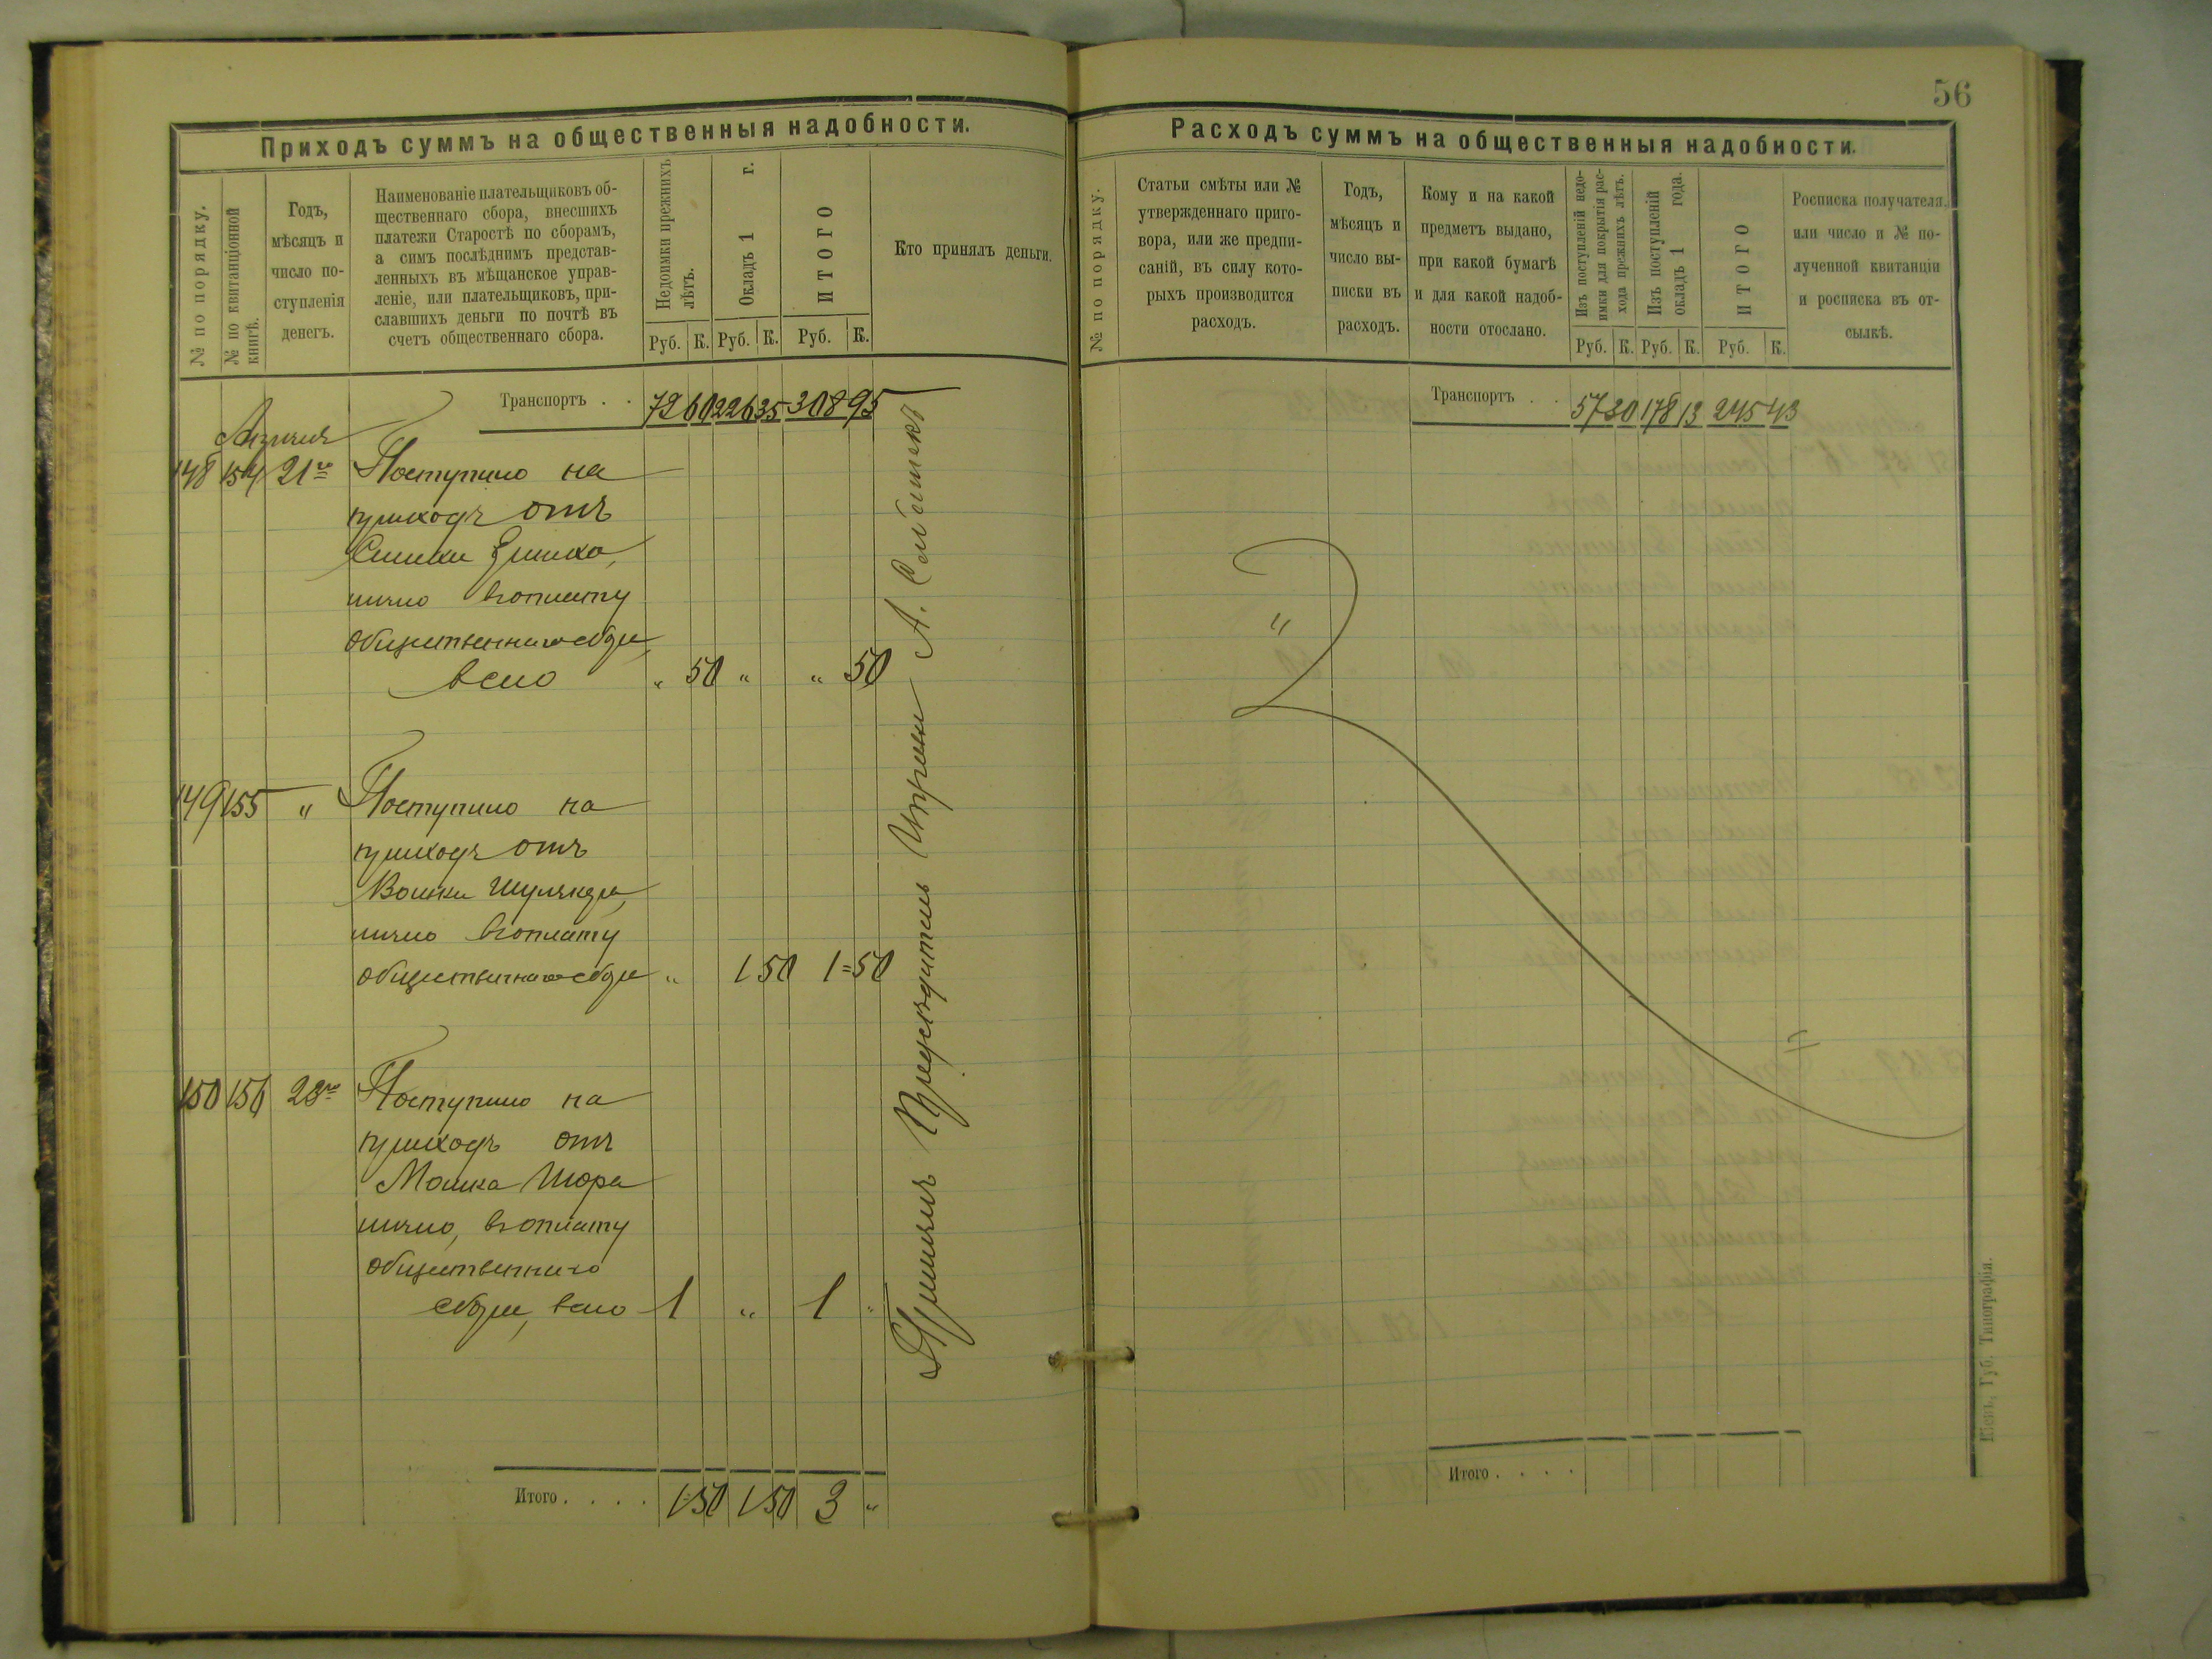 56
Приходъ суммъ на общественныя надобности.
№ по порядку.
№ по квитанціонной
книгѣ.
Годъ,
мѣсяцъ и
число по-
ступленія
денегъ.
Наименованіе плательщиковъ об-
щественнаго сбора, внесшихъ
платежи Старостѣ по сборамъ,
а симъ послѣднимъ представ-
ленныхъ въ мѣщанское управ-
леніе, или плательщиковъ, при-
славшихъ деньги по почтѣ въ
счетъ общественнаго сбора.
Недоимки прежнихъ
лѣтъ.
Окладъ 1 г.
ИТОГО
Кто принялъ деньги.
Руб. К. Руб. К. Руб. К.
Транспортъ . . 72 60 226 35 308 95
Апрѣля
148 154 21го Поступило на
приходъ отъ
лично въ оплату
общественнаго сбора,
всего " 50 " " 50
149 155 " Поступило на
приходъ отъ
лично въ оплату
общественнаго сбора " 1 50 1=50
150 156 28го Поступило на
приходъ отъ
Мошка Шора
лично, въ оплату
общественнаго
сбора, всего 1 " 1 "
Предсѣдатель Управы А.
Итого . . . . 1 50 1 50 3 "
Расходъ суммъ на общественныя надобности.
№ по порядку.
Статьи смѣты или №
утвержденнаго приго-
вора, или же предпи-
саній, въ силу кото-
рыхъ производится
расходъ.
Годъ,
мѣсяцъ и
число вы-
писки въ
расходъ.
Кому и на какой
предметъ выдано,
при какой бумагѣ
и для какой надоб-
ности отослано.
Изъ поступленій недо-
имки для покрытія рас-
хода прежнихъ лѣтъ.
Изъ поступленій
окладъ 1 года.
ИТОГО
Росписка получателя.
или число и № по-
лученной квитанціи
и росписка въ от-
сылкѣ.
Руб. К. Руб. К. Руб. К.
Транспортъ . . 57 30 178 13 245 43
"
Итого . . . .
Кіевъ, Губ. Типографія.